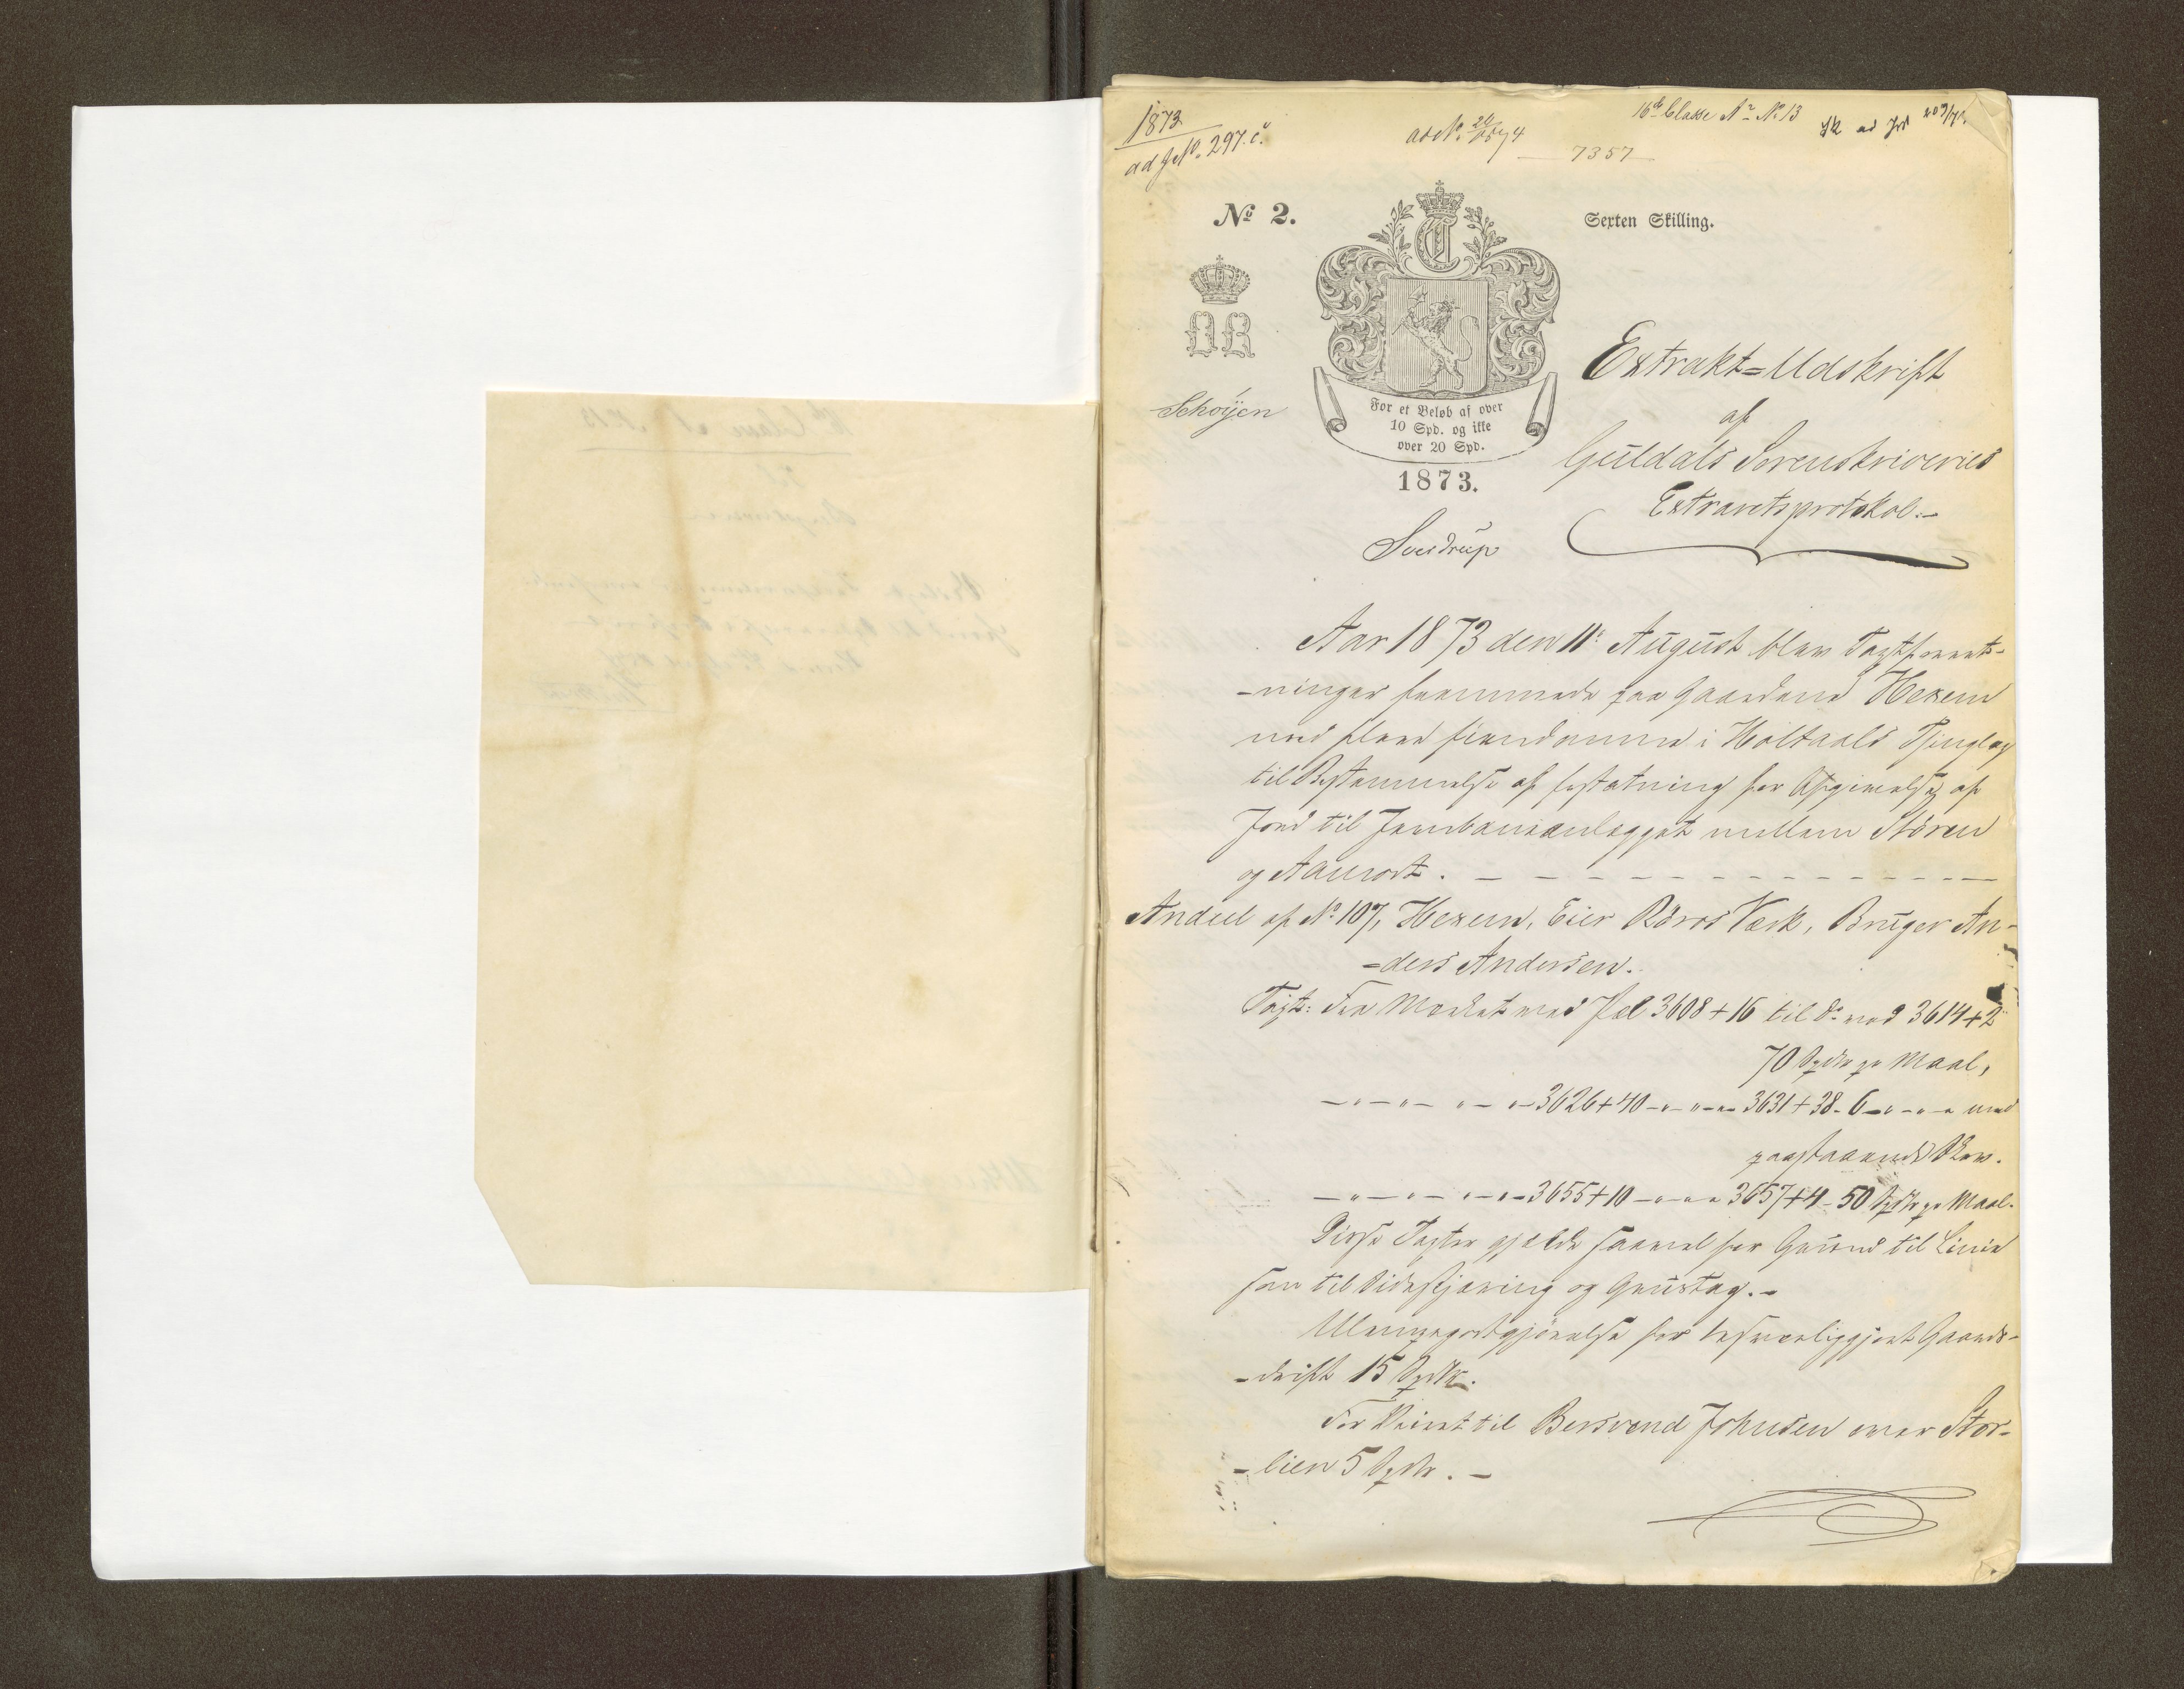 1873
ad J.No. 297.c.
16de Classe A No 13
7357
No 2.
Sexten Skilling.
Schøÿen
For et Beløb af over
10 Spd. og ikke
over 20 Spd.
1873.
Sverdrup
Extrakt=Udskrift
af
Guldals Sorenskriveries
Extraretsprotokol.-
Aar 1873 den 11te August blev Taxtforret-
-ninger fremmede paa Gaardene Hexem
med flere Eiendomme i Holtaals Thinglag
til Bestemmelse af Erstatning for Afgivelse af
Jord til Jernbaneanlægget mellem Støren
og Aamodt.
Andeel af No 107, Hexem, Eier Röros Værk, Bruger An-
=ders Andersen.
Taxt: Fra Mærket ved Pæl 3608 + 16 til do ved 3614 + 2
70 Spdlr pr Maal,
3626 + 40 3631 + 38 - 6 med
paastaaende Skov.
3655 + 10 3657 + 4 - 50 Spdlr pr Maal.
Disse Taxter gjælde saavel for Grund til Linie
som til Sideskjæring og Grustag.-
Ulempegodtgjörelse for besværliggjort Gaards-
-drift 15 Spdlr.
For Veiret til Bersvend Johnsen over Stor-
-lien 5 Spdlr.-